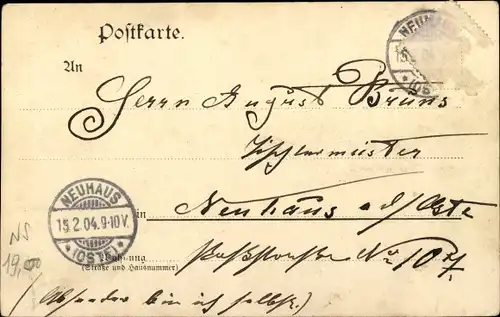 Postkarte.
NEUHAUS
15.2.04
*(OSTE)*
An
Herrn August Bruns
Tischlermeister
NEUHAUS
15.2.04.9-10V.
*(OSTE)*
in Neuhaus a/d Oste
Wohnung
(Straße und Hausnummer)
Poststraße No 107.
NS
19,00
(Absender bin ich selbst.)